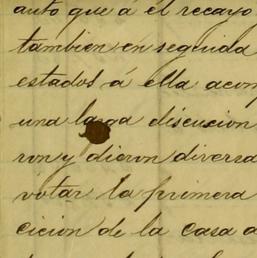 auto que á él recayo
tambien en seguida
estados á ella acom
una larga discucion
ron y dieron diversa
votar la primera
cicion de la casa a